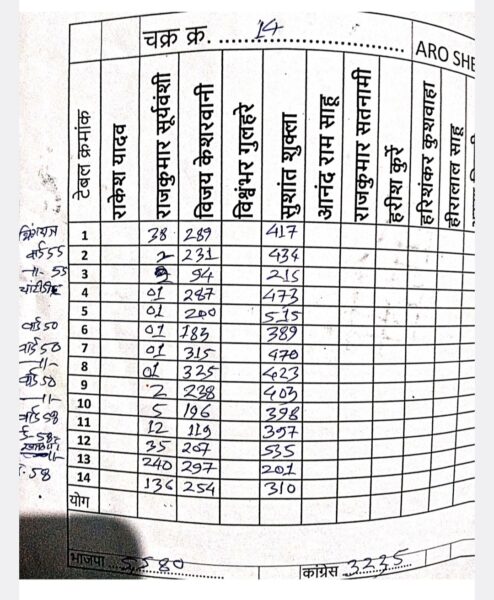 चक्र क्र. 14 ARO SHE
टेबल क्रमांक राकेश यादव राजकुमार सूर्यवंशी विजय केशरवानी विश्वंभर गुलहरे सुशांत शुक्ला आनंद राम साहू राजकुमार सतनामी हरीश कुर्रे हरिशंकर कुशवाहा हीरालाल साहू
1 38 289 417
वार्ड 55 2 2 231 434
-11- 55 3 94 215
4 01 287 473
5 01 200 515
वार्ड 50 6 01 183 389
वार्ड 50 7 01 315 470
-11- 8 01 325 423
वार्ड 50 9 2 238 403
-11- 10 5 196 398
वार्ड 58 11 12 119 397
12 35 207 535
-11- 13 240 297 201
58 14 136 254 310
योग
भाजपा 5580 कांग्रेस 3235